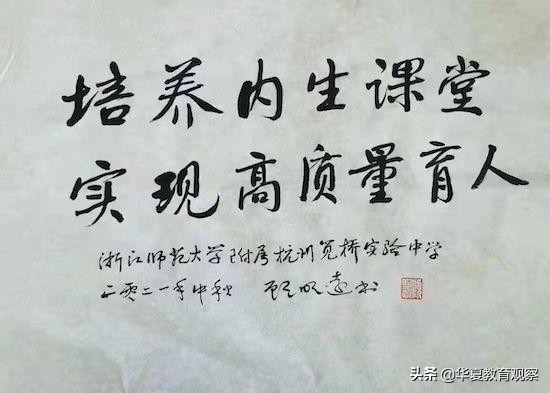 培养内生课堂
实现高质量育人
浙江师范大学附属杭州笕桥实验中学
二零二一年中秋 顾明远书
头条 @华夏教育观察